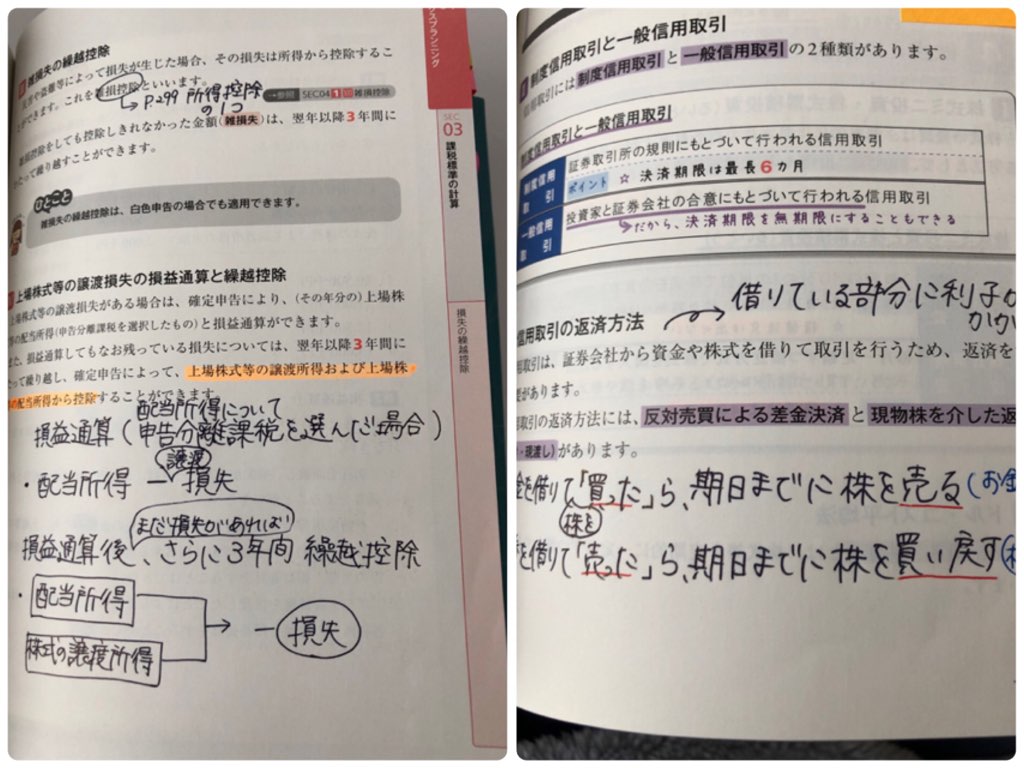 雑損失の繰越控除
災害や盗難等によって損失が生じた場合、その損失は所得から控除するこ
とができます。これを雑損控除といいます。
→P.299 所得控除
の1つ
→参照 SEC04 雑損控除
雑損控除をしても控除しきれなかった金額(雑損失)は、翌年以降3年間に
わたって繰り越すことができます。
ひとこと
雑損失の繰越控除は、白色申告の場合でも適用できます。
上場株式等の譲渡損失の損益通算と繰越控除
上場株式等の譲渡損失がある場合は、確定申告により、(その年分の)上場株
等の配当所得(申告分離課税を選択したもの)と損益通算ができます。
また、損益通算してもなお残っている損失については、翌年以降3年間に
たって繰り越し、確定申告によって、上場株式等の譲渡所得および上場株
の配当所得から控除することができます。
配当所得について
損益通算(申告分離課税を選んだ場合)
譲渡
・配当所得 ー 損失
まだ損失があれば
損益通算後、さらに3年間 繰越控除
・配当所得
株式の譲渡所得
→ ー 損失
スプランニング
SEC.
03
課税標準の計算
損失の繰越控除
制度信用取引と一般信用取引
には制度信用取引と一般信用取引の2種類があります。
制度信用取引と一般信用取引
制度信用取引
証券取引所の規則にもとづいて行われる信用取引
ポイント ☆ 決済期限は最長6カ月
一般信用取引
投資家と証券会社の合意にもとづいて行われる信用取引
だから、決済期限を無期限にすることもできる
信用取引の返済方法
→借りている部分に利子が
かか
取引は、証券会社から資金や株式を借りて取引を行うため、返済を
要があります。
取引の返済方法には、反対売買による差金決済と現物株を介した返
・現渡し)があります。
金を借りて「買った」ら、期日までに株を売る(お金
株を
を借りて「売った」ら、期日までに株を買い戻す(株